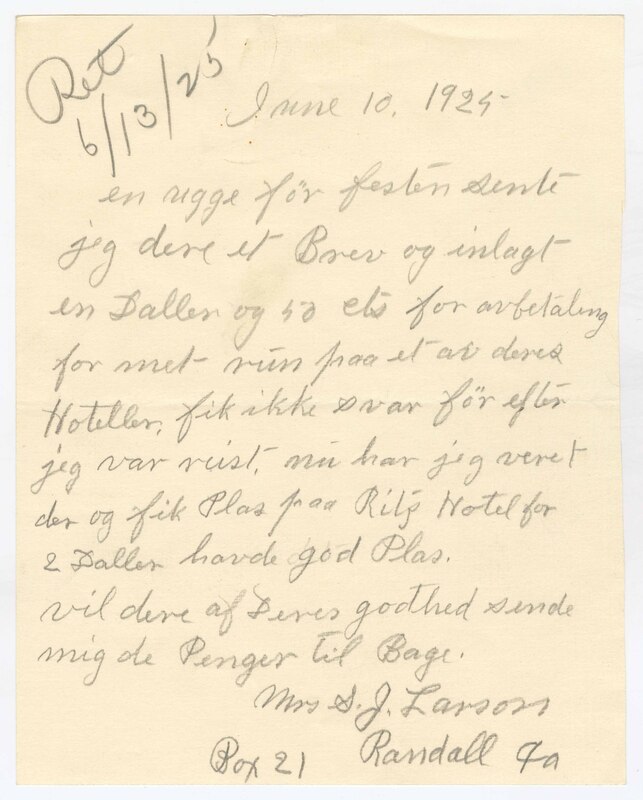 Ret
6/13/25
June 10, 1925
en ugge før festen sente
jeg dere et Brev og inlagt
en Daller og 50 cts for avbetaling
for met rün paa et av deres
Hoteller, fik ikke svar før efter
jeg var reist, nu har jeg veret
der og fik Plas paa Rits Hotel for
2 Daller havde god Plas.
vil dere af Deres godthed sende
mig de Penger til Bage.
Mrs S. J. Larson
Box 21 Randall Ia